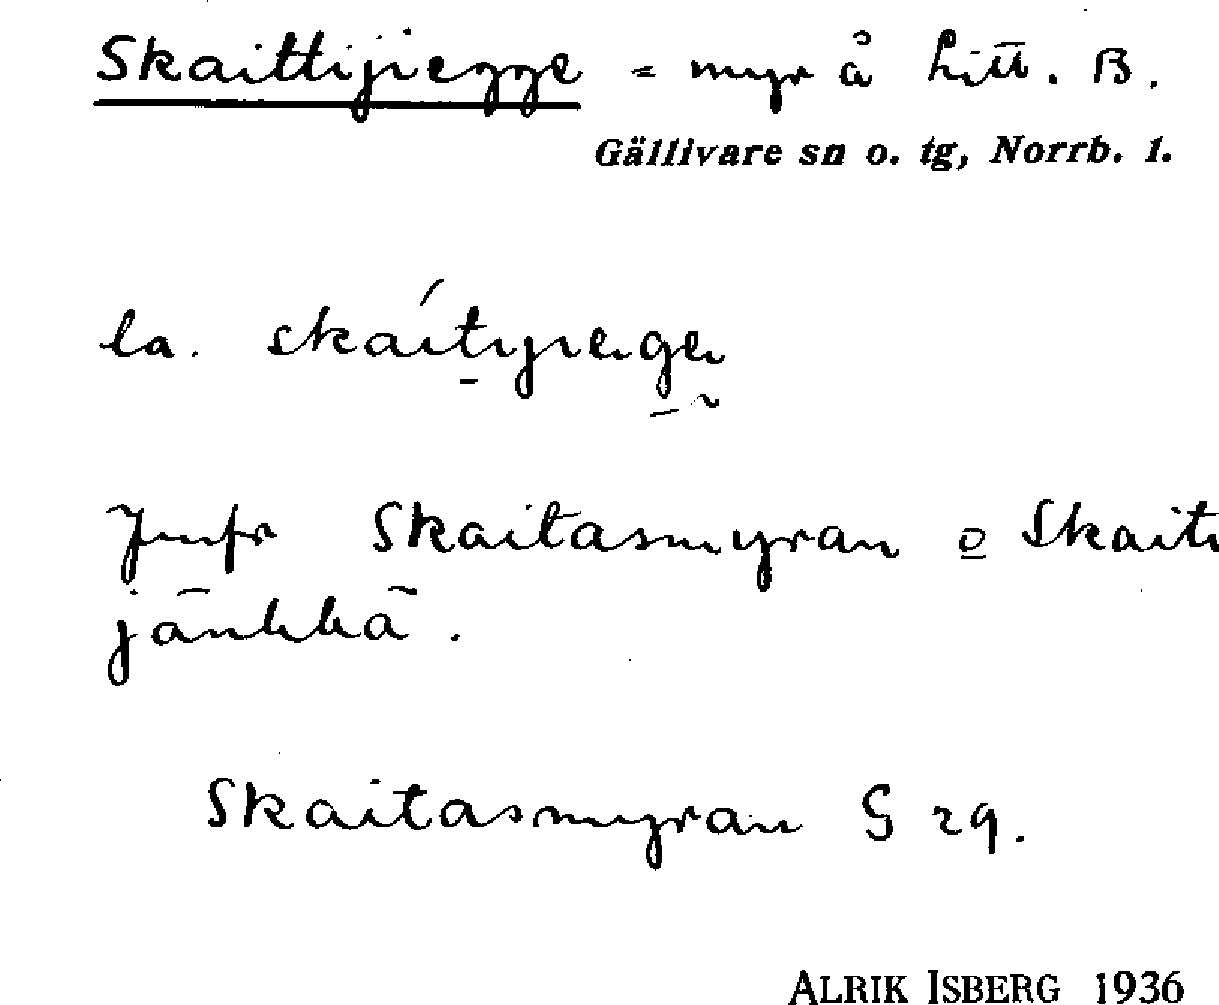 Skaittijiegge = myr å Litt. B.
Gällivare sn o. tg, Norrb. 1.
la. skaitijiegge
Jmfr Skaitasmyran o Skaiti
jänkkä.
Skaitasmyran G 29.
ALRIK ISBERG 1936